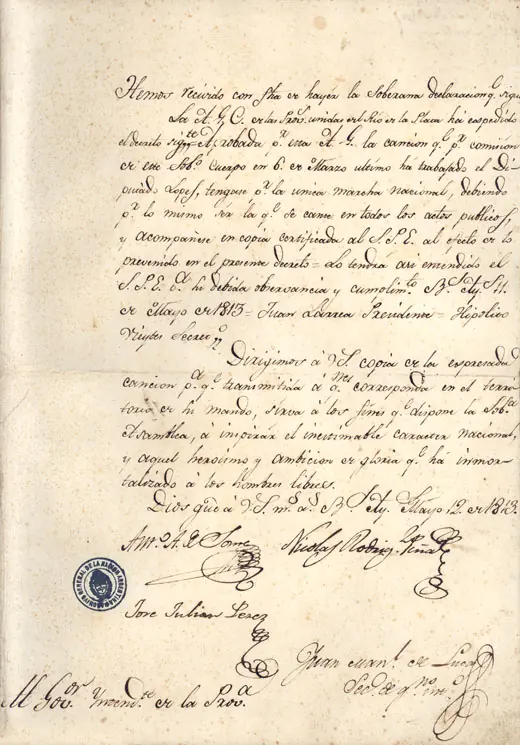 Hemos recivido con fha de hayer la Soberana declaracion q.e sigue
La A. G. C. de las Prov.s unidas del Rio de la Plata ha expedido
el decreto sig.te Aprobada p.r esta A. G. la cancion q.e p.r comision
de este Sob.o Cuerpo en 6. de Marzo ultimo ha trabajado el Di-
putado Lopes, tengase p.r la unica marcha Nacional, debiendo
p.r lo mismo ser la q.e se cante en todos los actos publicos,
y acompañese en copia certificada al S. P. E. al efecto de lo
prevenido en el presente decreto = Lo tendrá asi entendido el
S. P. E. p.a su debida observancia y cumplim.to B.s Ay.s 11.
de Mayo de 1813 = Juan Larrea Presidente = Hipolito
Vieytes Secret.o
Dirigimos á V. S. copia de la expresada
cancion p.a q.e transmitida á q.nes corresponda en el terri-
torio de su mando, sirva á los fines q.e dispone la Sob.na
Asamblea, á inspirar el inestimable caracter nacional,
y aquel heroismo y ambicion de gloria q.e ha inmor-
talizado á los hombres libres.
Dios gue á V. S. m.s a.s B.s Ay.s Mayo 12. de 1813.
Nicolas Rodrig.z Peña
Jose Julian Perez
Juan Man.l de Luca
Al Gov.or Yntend.te de la Prov.a
ARCHIVO GENERAL DE LA NACION ARGENTINA